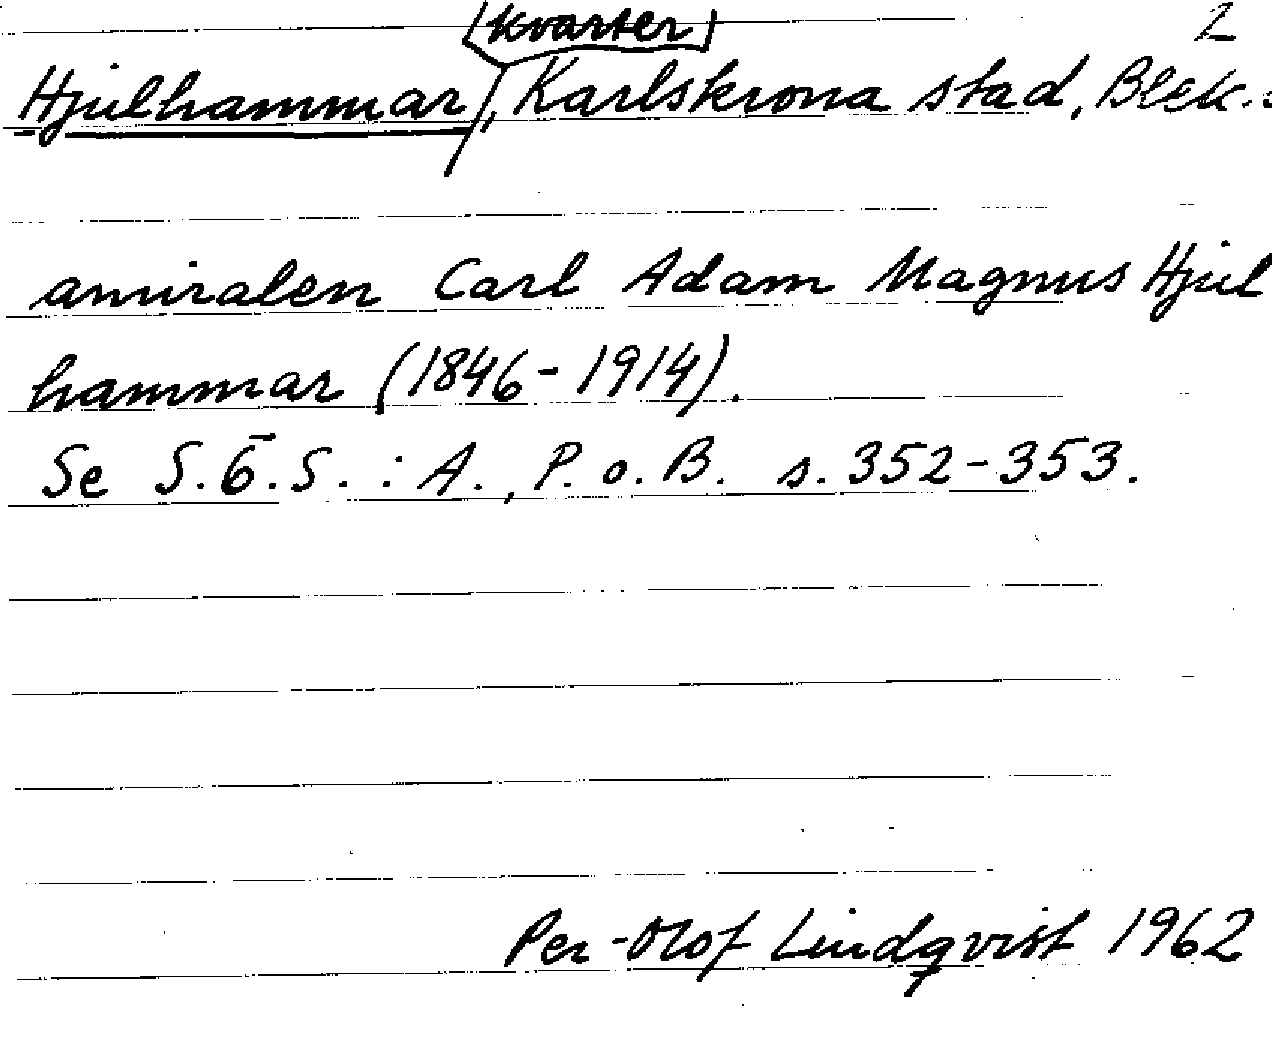 (kvarter) 2
Hjulhammar, Karlskrona stad, Blek.
amiralen Carl Adam Magnus Hjul
hammar (1846-1914).
Se S.Ö.S.: A., P. o. B. s. 352-353.
Per-Olof Lindqvist 1962